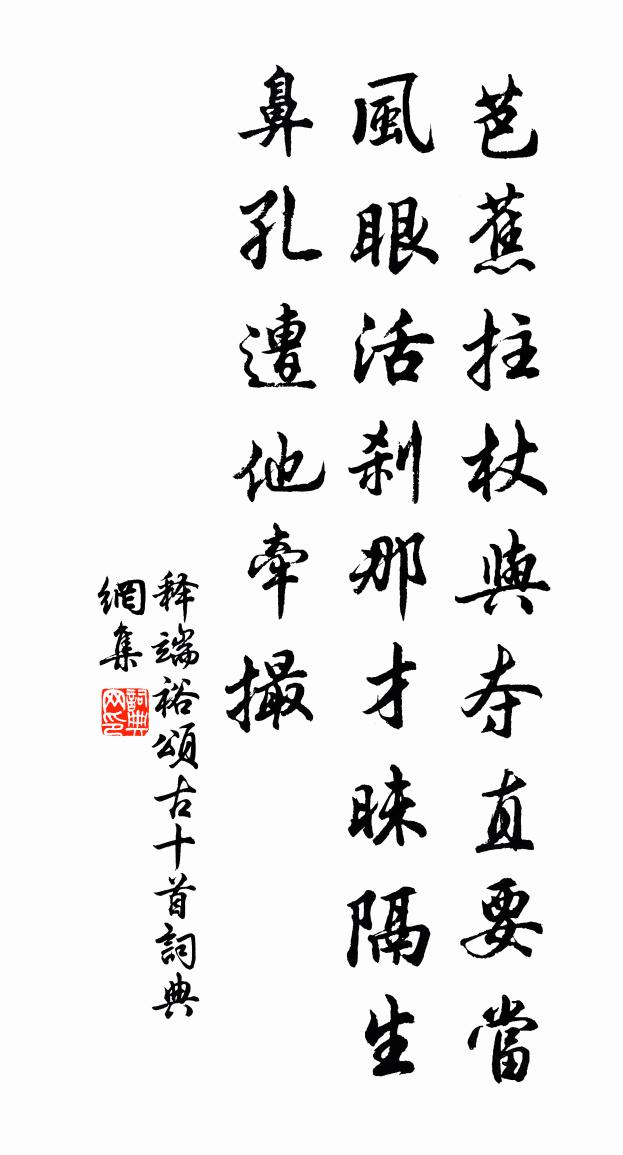 芭蕉拄杖與夺直要當
風眼活刹那才昧隔生
鼻孔遭他牽撮
释端裕頌古十首詞典
網集
詞典
网印